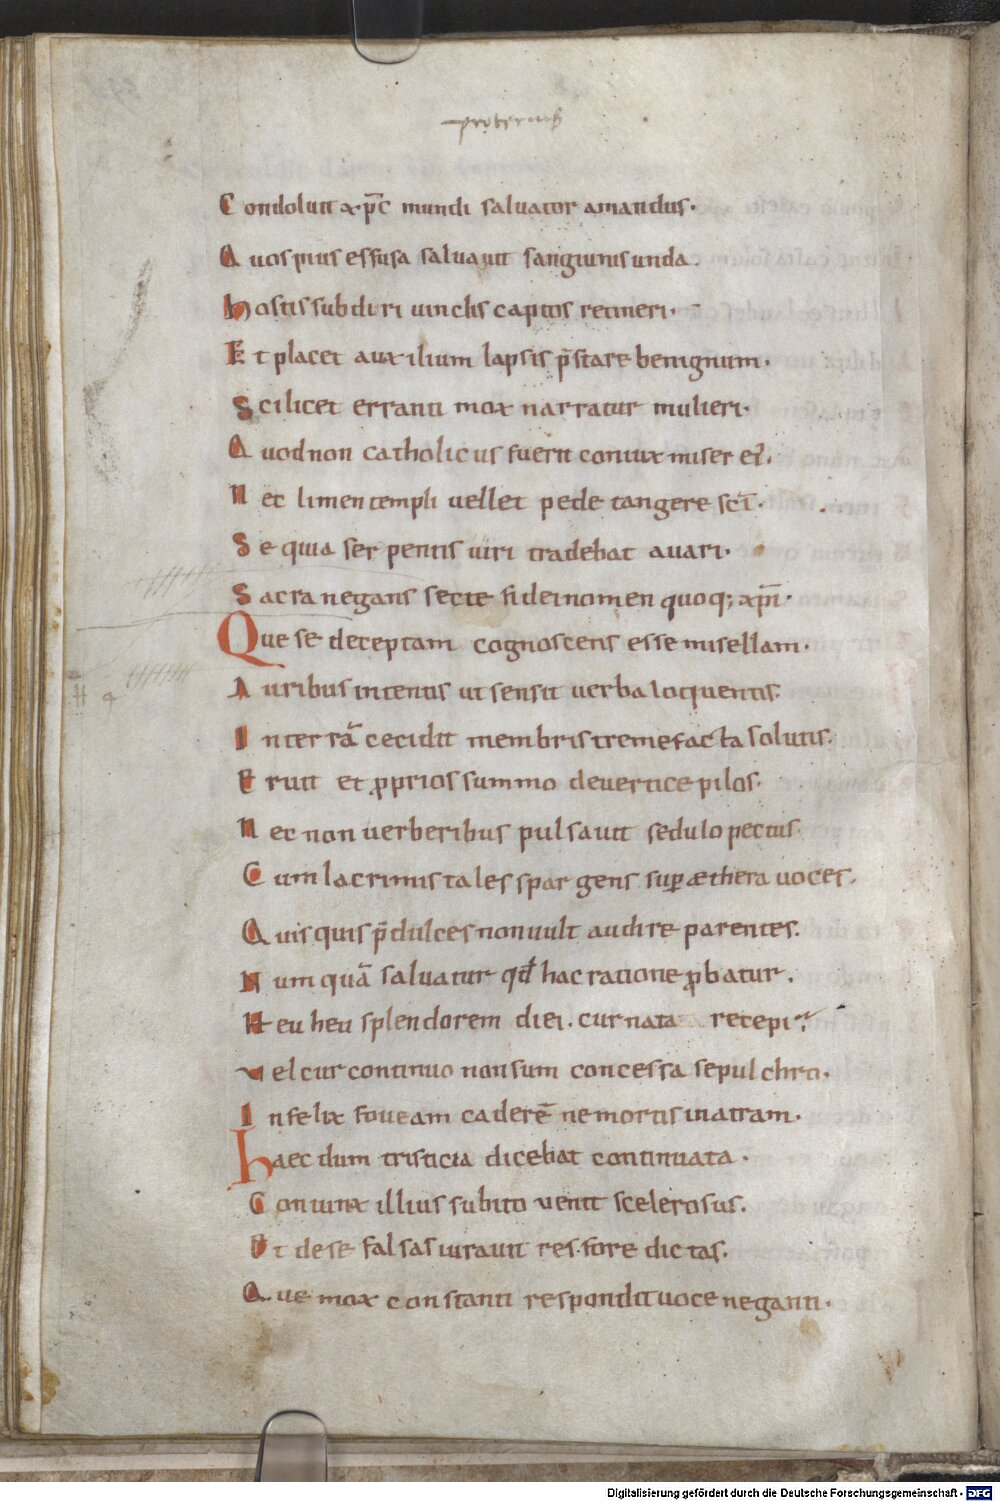 proterius
Condoluit xp̄c mundi saluator amandus·
Quos pius effusa saluauit sanguinis unda.
hostis sub duri uinclis captos retineri·
Et placet auxilium lapsis p̄stare benignum·
Scilicet erranti mox narratur mulieri·
Quod non catholicus fuerit coniux miser ei᷒.
Nec limen templi uellet pede tangere sc̄i·
Se quia serpentis uiri tradebat auari·
Sacra negans secte fidei nomen quoq; xp̄ı·
Que se deceptam cognoscens esse misellam·
Auribus intentis ut sensit uerba loquentis.
In terrā cecidit membris tremefacta solutis.
Eruit et ꝓprios summo deuertice pilos·
Nec non uerberibus pulsauit sedulo pectus·
Cum lacrimis tales spargens suꝑ æthera uoces.
Quisquis p̄dulces non uult audire parentes.
Numquā saluatur qđ hac ratione ꝓbatur.
Heu heu splendorem diei. cur nata recepi?
Vel cur continuo non sum concessa sepulchro.
Infelix foueam caderē ne mortis in atram·
Haec dum tristicia dicebat continuata·
Coniunx illius subito uenit scelerosus.
Et de se falsas iurauit res·fore dictas.
Que mox constanti respondit uoce neganti·
Digitalisierung gefördert durch die Deutsche Forschungsgemeinschaft - DFG